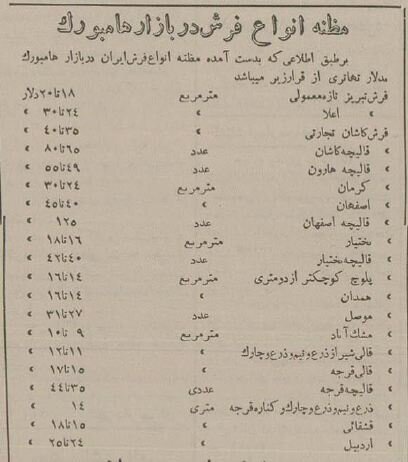 مظنه انواع فرش در بازار هامبورك
برطبق اطلاعی که بدست آمده مظنه انواع فرش ایران در بازار هامبورك
بدلار تهاتری از قرار زیر میباشد
فرش تبریز تازه معمولی مترمربع ۱۸تا۲۰ دلار
» اعلا » ۲۴تا۳۰ »
فرش کاشان تجارتی » ۳۵تا۴۰ »
» قالیچه کاشان عدد ۶۵تا۸۰ »
» قالیچه هارون عدد ۴۹تا۵۵ »
» کرمان مترمربع ۲۴تا۳۰ »
» اصفهان » ۴۰تا۴۵ »
» قالیچه اصفهان عدد ۱۲۵ »
» بختیار مترمربع ۱۶تا۱۸ »
» قالیچه بختیار عدد ۴۰تا۴۲ »
» بلوچ کوچکتر از دومتری مترمربع ۱۴تا۱۶ »
» همدان » ۱۴تا۱۶ »
» موصل عدد ۲۷تا۳۱ »
» مشك آباد مترمربع ۹ تا۱۰ »
» قالی شیراز ذرع و نیم و ذرع و چارك » ۱۱تا۱۲ »
» قالی قرجه » ۱۵تا۱۷ »
» قالیچه قرجه عددی ۳۵تا۴۴ »
» ذرع و نیم و ذرع و چارك و کناره قرجه متری ۱۴ »
» قشقائی » ۱۵تا۱۸ »
» اردبیل » ۲۴تا۲۵ »